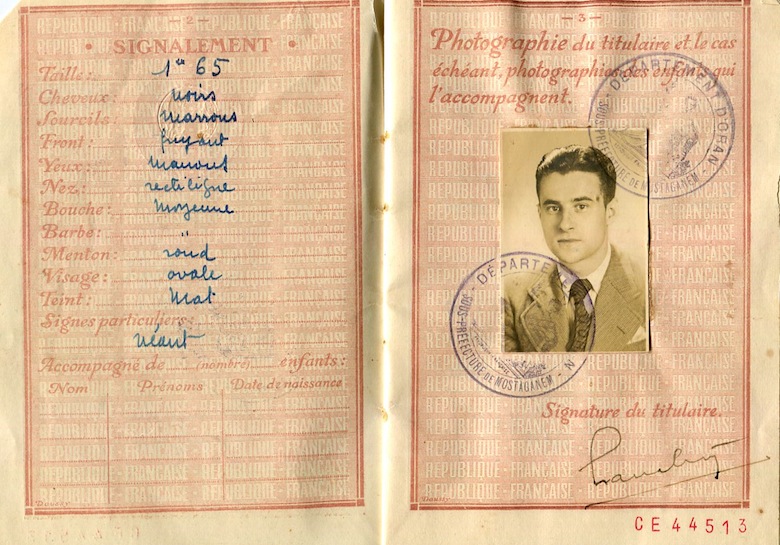 — 2 —
• SIGNALEMENT •
Taille: 1m 65
Cheveux: Noirs
Sourcils: Marrons
Front: fuyant
Yeux: Marrons
Nez: rectiligne
Bouche: Moyenne
Barbe: "
Menton: rond
Visage: ovale
Teint: Mat
Signes particuliers:
Néant
Accompagné de ...... (nombre) ...... enfants:
Nom Prénoms Date de naissance
— 3 —
Photographie du titulaire et le cas
échéant, photographies des enfants qui
l'accompagnent.
DÉPARTEMENT D'ORAN
SOUS-PRÉFECTURE DE MOSTAGANEM
DÉPARTE N
SOUS-PRÉFECTURE DE MOSTAGANEM
Signature du titulaire.
CE44513
RÉPUBLIQUE - FRANÇAISE